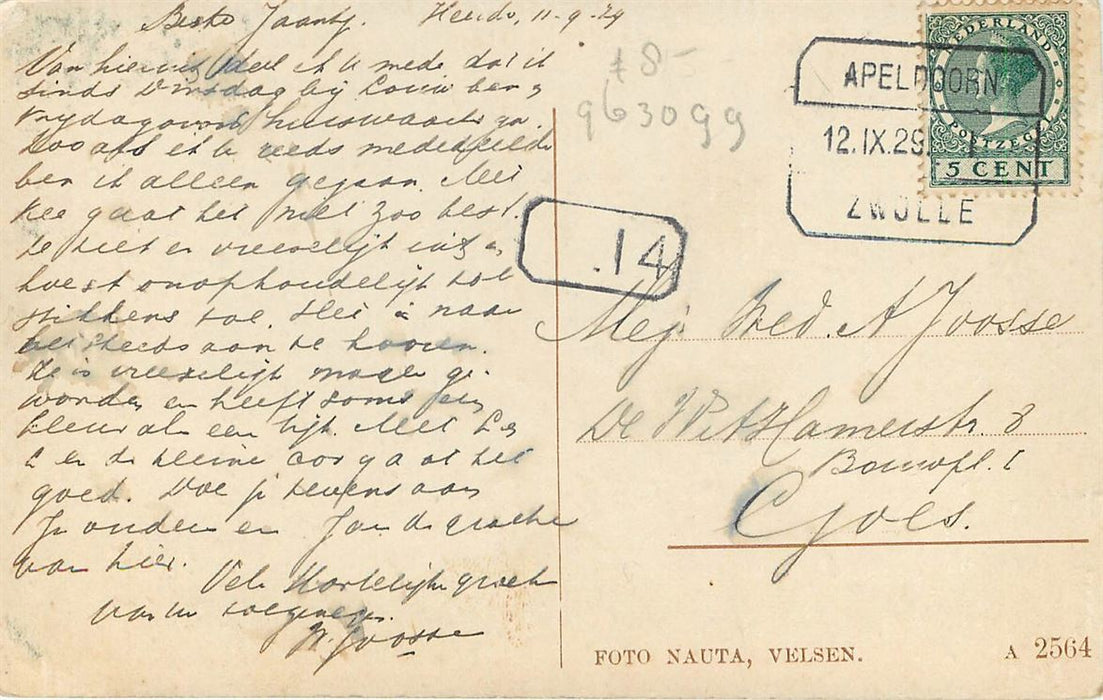 Beste Jaantj. 11-9-29
Van hieruit deel ik U mede dat ik
sinds Dinsdag bij Louw ben
Vrijdagavond
Zoo als ik U reeds mededeelde
ben ik alleen gegaan. Met
Kee gaat het niet zoo best.
Ze ziet er vreeselijk uit en
hoest onophoudelijk tot
stikkens toe. Het is naar
het steeds aan te hooren.
Ze is vreeselijk mager ge-
worden en heeft soms een
kleur als een lijk. Met L en
de kleine Cor gaat het
goed. Doe je tevens aan
ouders en Jan de groeten
van hier.
Vele Hartelijke groeten
van uw toegenegen
W. Joosse
£8-
963099
NEDERLAND
POSTZEGEL
5 CENT
APELDOORN
12.IX.29. 1
ZWOLLE
.14
Mej. Wed. A Joosse
De Witt Hamerstr. 8
Goes.
FOTO NAUTA, VELSEN. A 2564